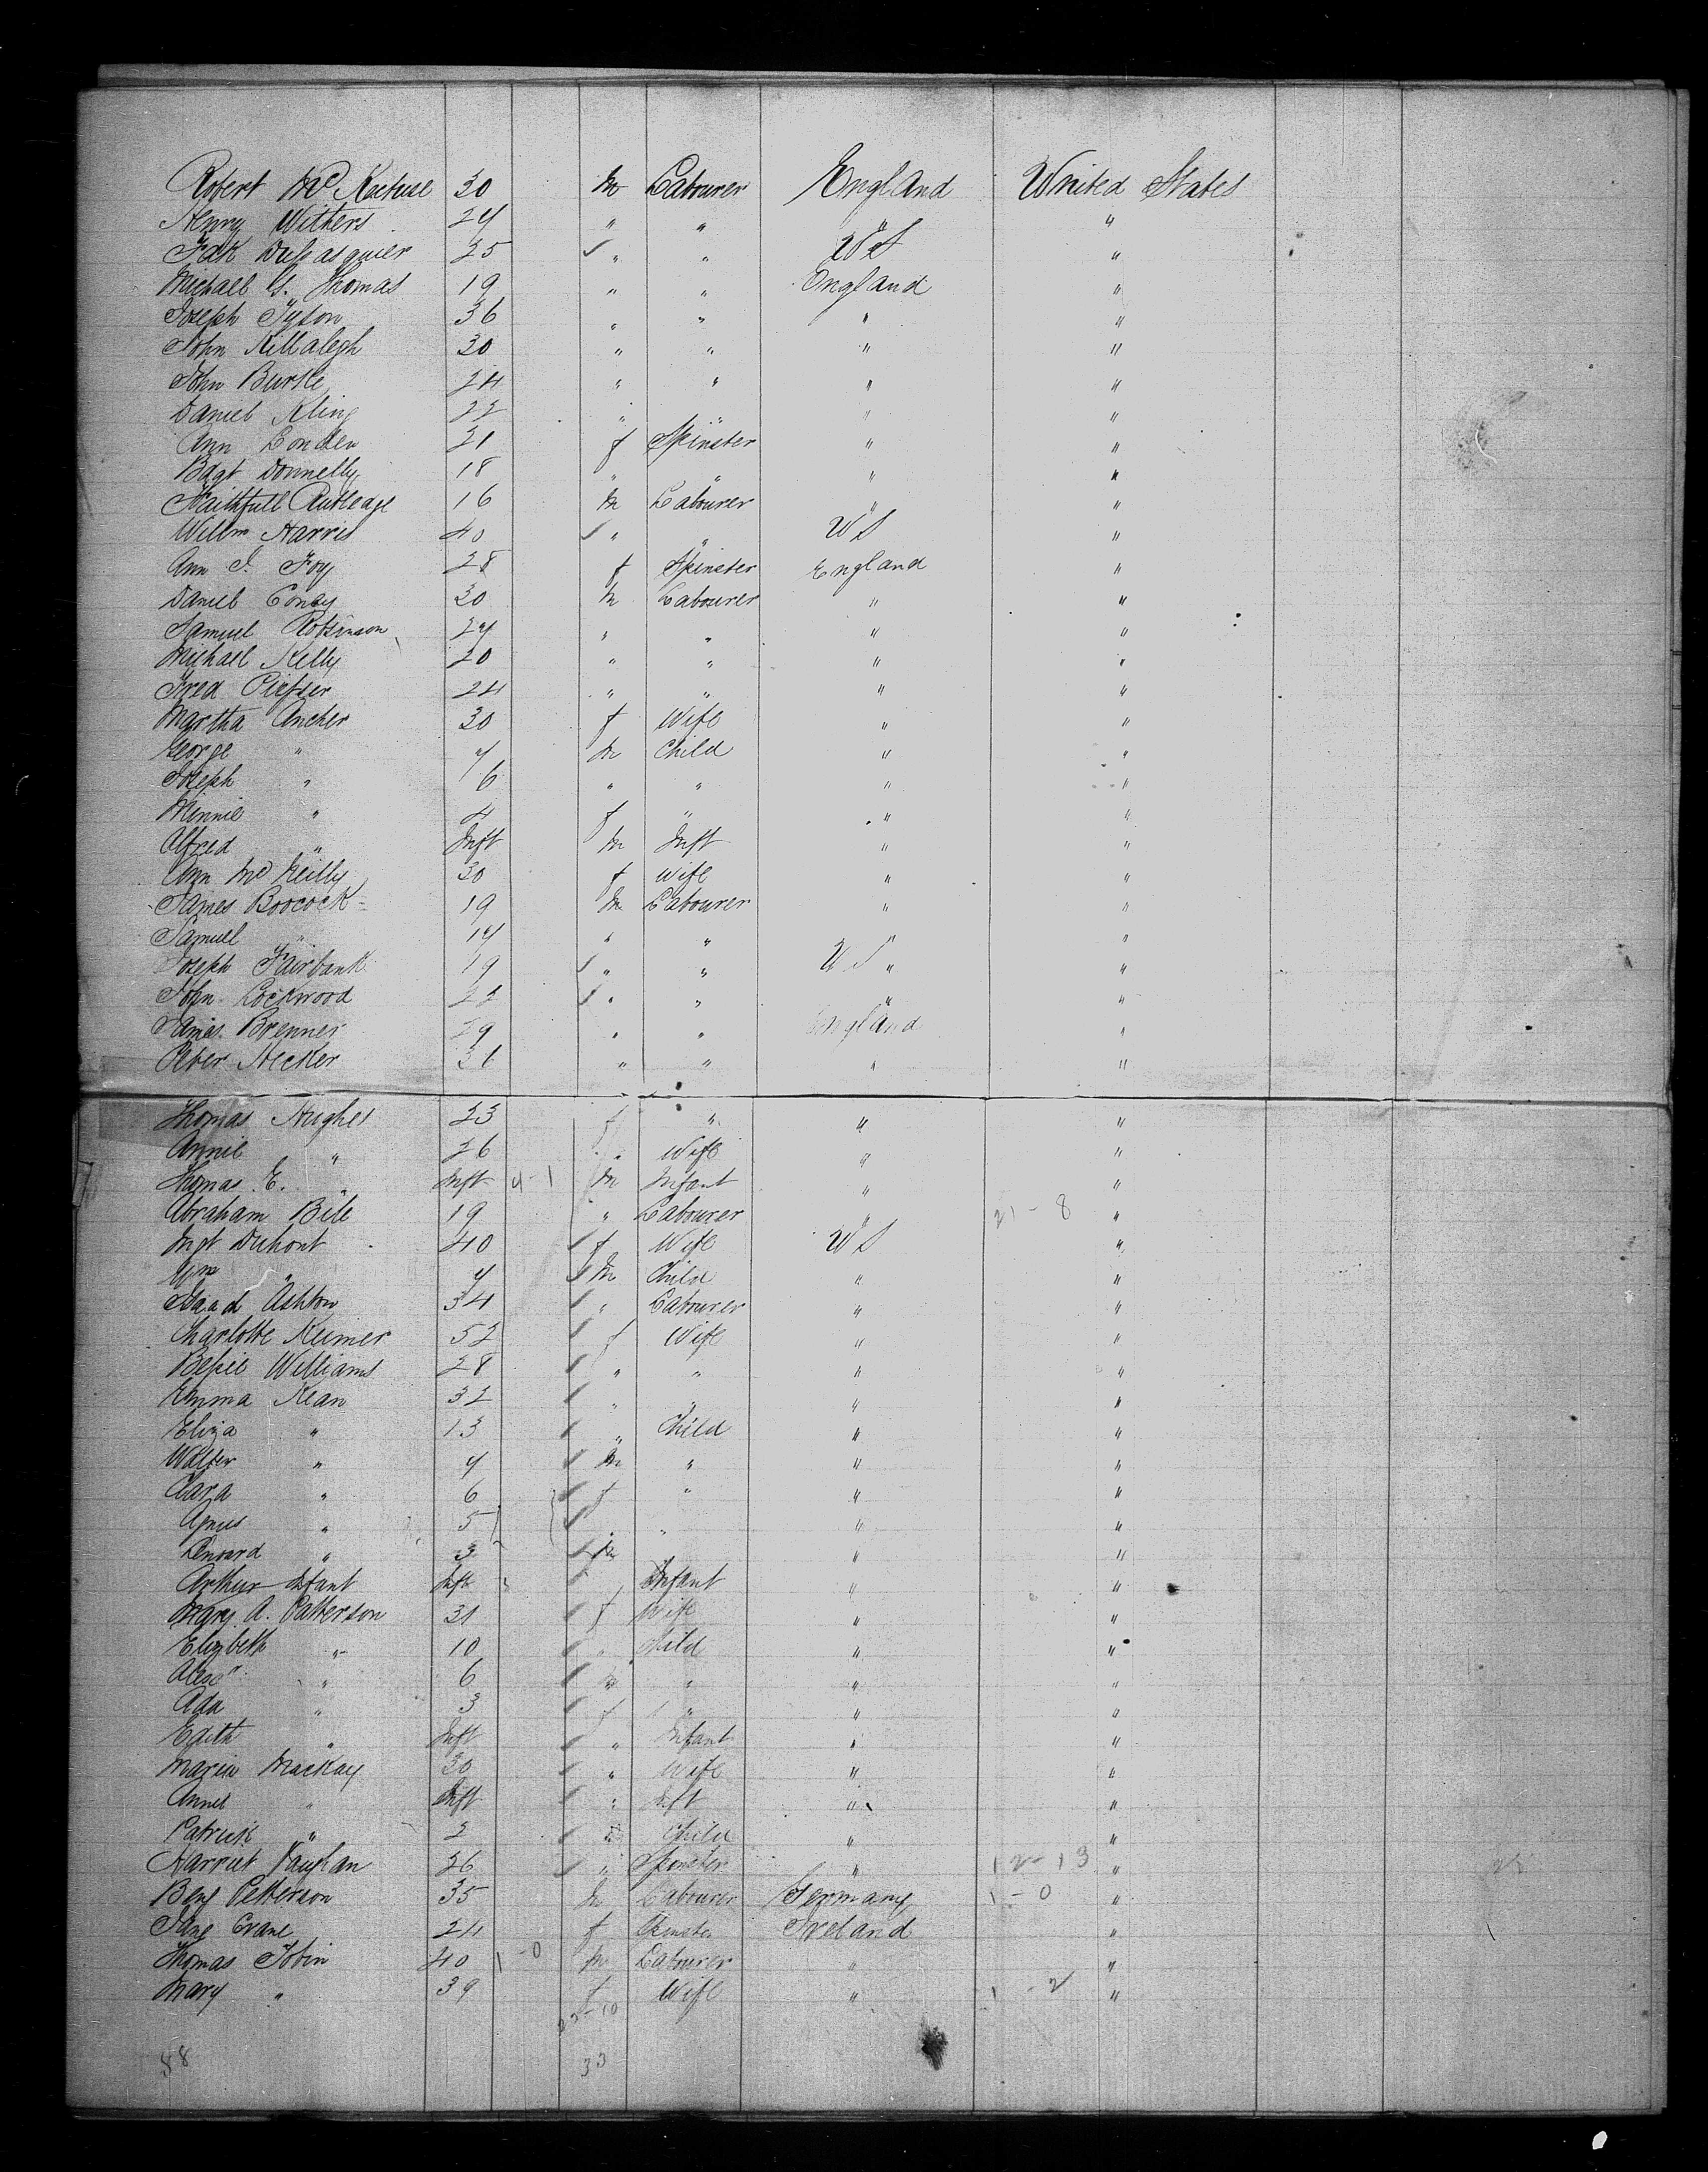 Robert Mc 30 m Labourer England United States
Henry Withers 24 " " " "
25 " " US "
Michael G. Thomas 19 " " England "
Joseph Tyson 36 " " " "
John Killalegh 30 " " " "
John Burke 24 " " " "
Daniel Kling 22 " " " "
Ann Conden 21 f Spinster " "
Bdgt Donnelly 18 " " " "
Faithfull Rutledge 16 m Labourer " "
Willm Harris 40 " " US "
Ann J. Foy 28 f Spinster England "
Daniel Coney 30 m Labourer " "
Samuel Robinson 24 " " " "
Michael Kelly 20 " " " "
Fred 24 " " " "
Martha Ancher 30 f Wife " "
George " 7 m Child " "
Joseph " 6 " " " "
Minnie " 4 f " " "
Alfred " Inft m Inft " "
Ann Mc Reilly 30 f Wife " "
James Boocock 19 m Labourer " "
Samuel " 17 " " " "
Joseph Fairbank 19 " " US " "
John Lockwood 22 " " " "
James Brenner 29 " " England "
Peter Hecker 31 " " " "
Thomas Hughes 23 " " "
Annie " 26 " Wife " "
Thomas E. " Inft 4-1 m Infant " "
Abraham Bile 19 " Labourer " 21-8 "
Mgt Duhont 40 f Wife US "
Wm " 7 m Child " "
Isaad Ashton 34 " Labourer " "
Charlotte Keimer 52 f Wife " "
Bessie Williams 28 " " " "
Emma Kean 32 " " " "
Eliza " 13 " Child " "
Walter " 7 m " " "
Clara " 6 f " " "
Agnes " 5 " " " "
Lenoard " 3 m " "
Arthur Infant Inft Infant " "
Mary A. Patterson 31 f Wife " "
Elizbeth " 10 " Child " "
Alexr " 6 m " " "
Ada " 3 f " " "
Edith " Inft " Infant " "
Maria MacKay 30 " Wife " "
Annie " Inft " Inft " "
Patrick " 2 Child " "
Harriet Vaughan 26 " Spinster " 12-13 "
Benj Petterson 35 m Labourer Germany 1-0 "
Jane Crane 24 f Spinster Ireland "
Thomas Tobin 40 1-0 m Labourer " "
Mary " 39 f Wife " 1-2 "
22-10
58 33